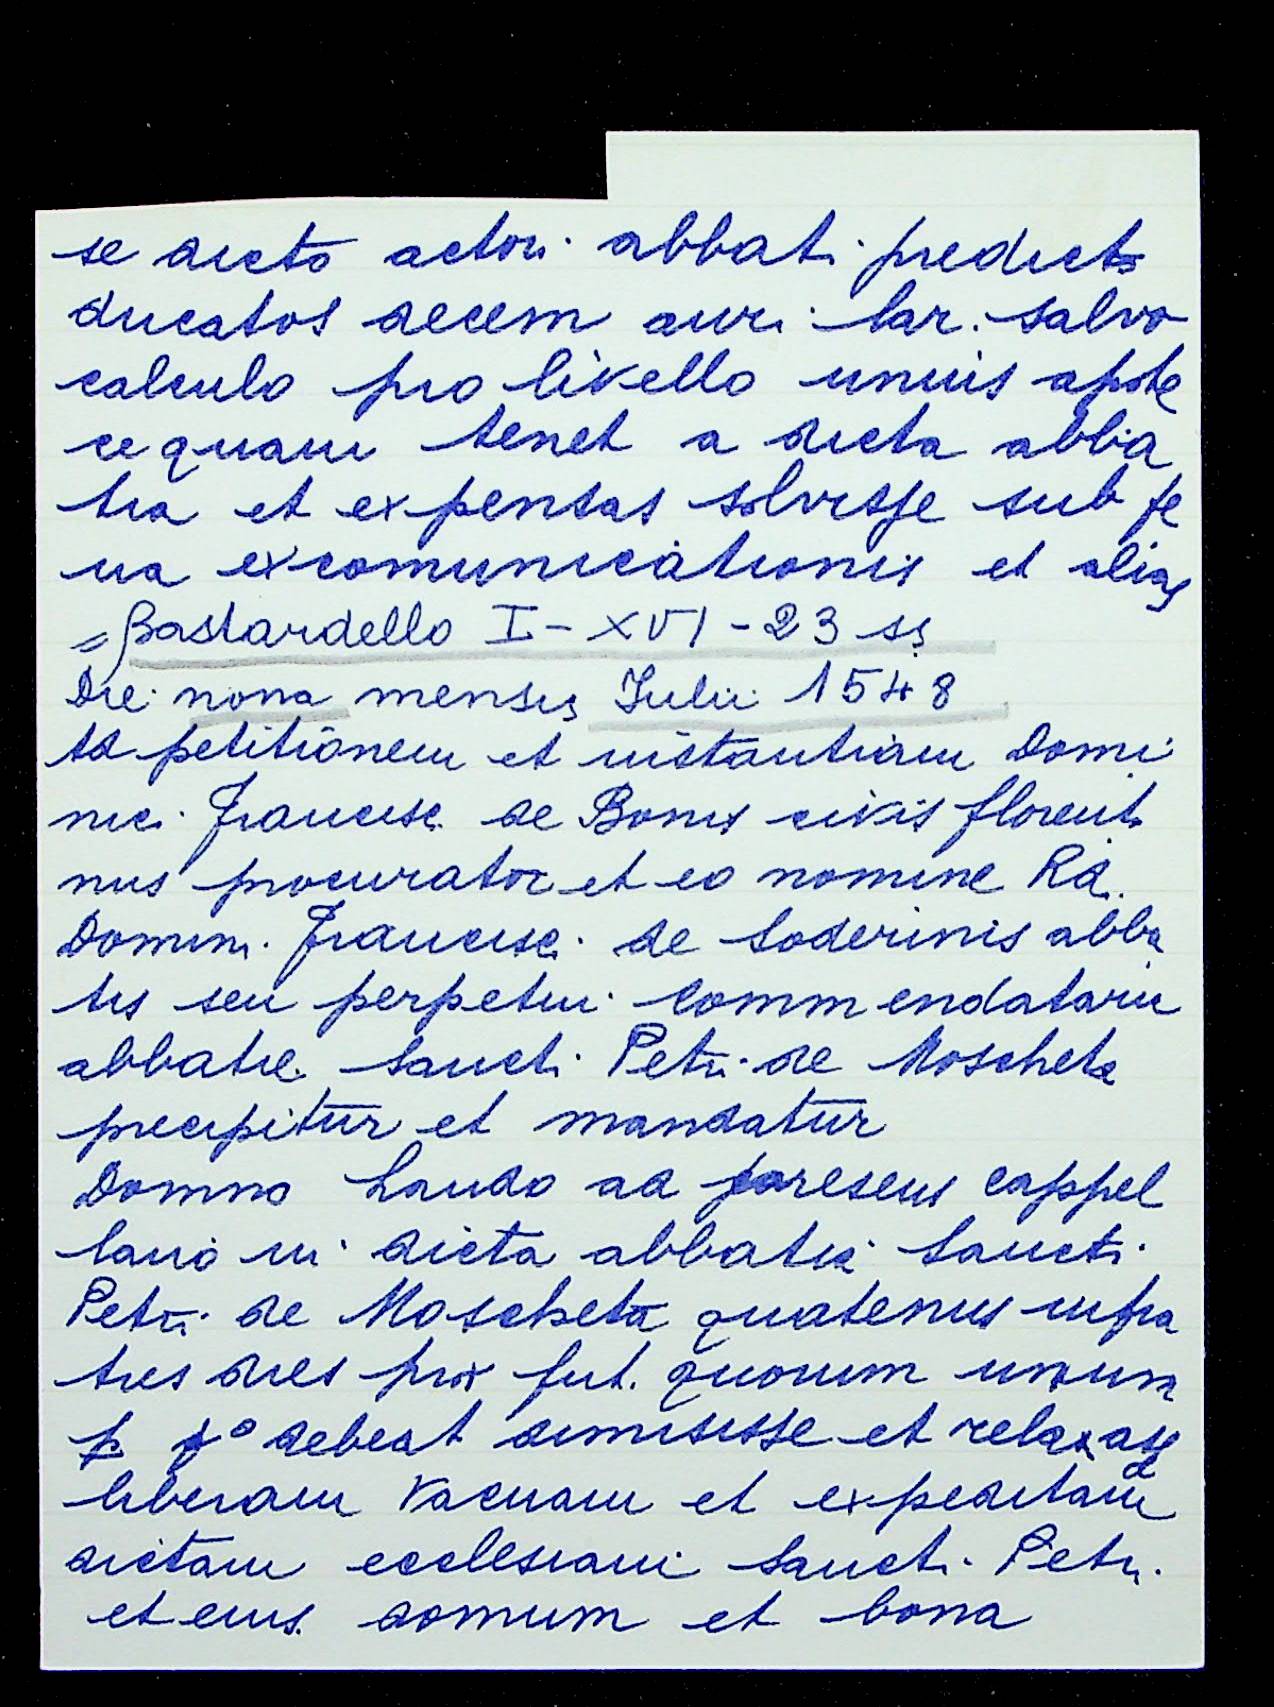 se dicto actori abbati predicto
ducatos decem auri lar. salvo
calculo pro livello unius apote
ce quam tenet a dicta abba
tia et expensas solvisse sub pe
na excomunicationis et alias
= Bastardello I - XVI - 23 ss
Die nona mensis Iulii 1548
Ad petitionem et instantiam Domi
nici Francisci de Bonis civis florenti
nus procurator et eo nomine Rd.
Domini Francisci de Soderinis abba
tis seu perpetui commendatarii
abbatie Sancti Petri de Moscheta
precipitur et mandatur
Domno Lando ad presens cappel
lano in dicta abbatia Sancti
Petri de Moscheta quatenus infra
tres dies prox fut. quorum unum
p pº debeat dimisisse et relaxasse
liberam vacuam et expeditam
dictam ecclesiam Sancti Petri
et eius domum et bona